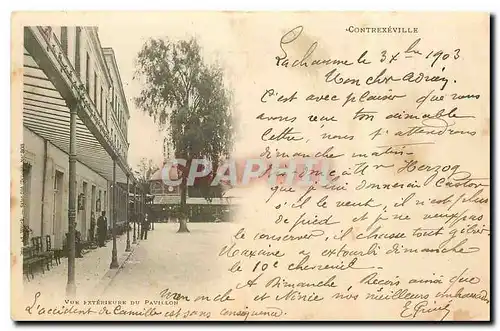 CONTREXÉVILLE
Lacharme le 3 Xbre 1903
Mon cher Adrien.
C'est avec plaisir que nous
avons reçu ton aimable
lettre, nous t'attendrons
dimanche matin
à Mr Herzog
que je lui donnerai Castor
s'il le veut, il n'est plus
de pied et je ne veux pas
le conserver, il court tout gibier
dimanche
le 10e chevreuil
A Dimanche, Reçois ainsi que
et Ninie nos meilleurs embrassades
VUE EXTÉRIEURE DU PAVILLON
L'accident de Camille est sans conséquence.
CPARAMA